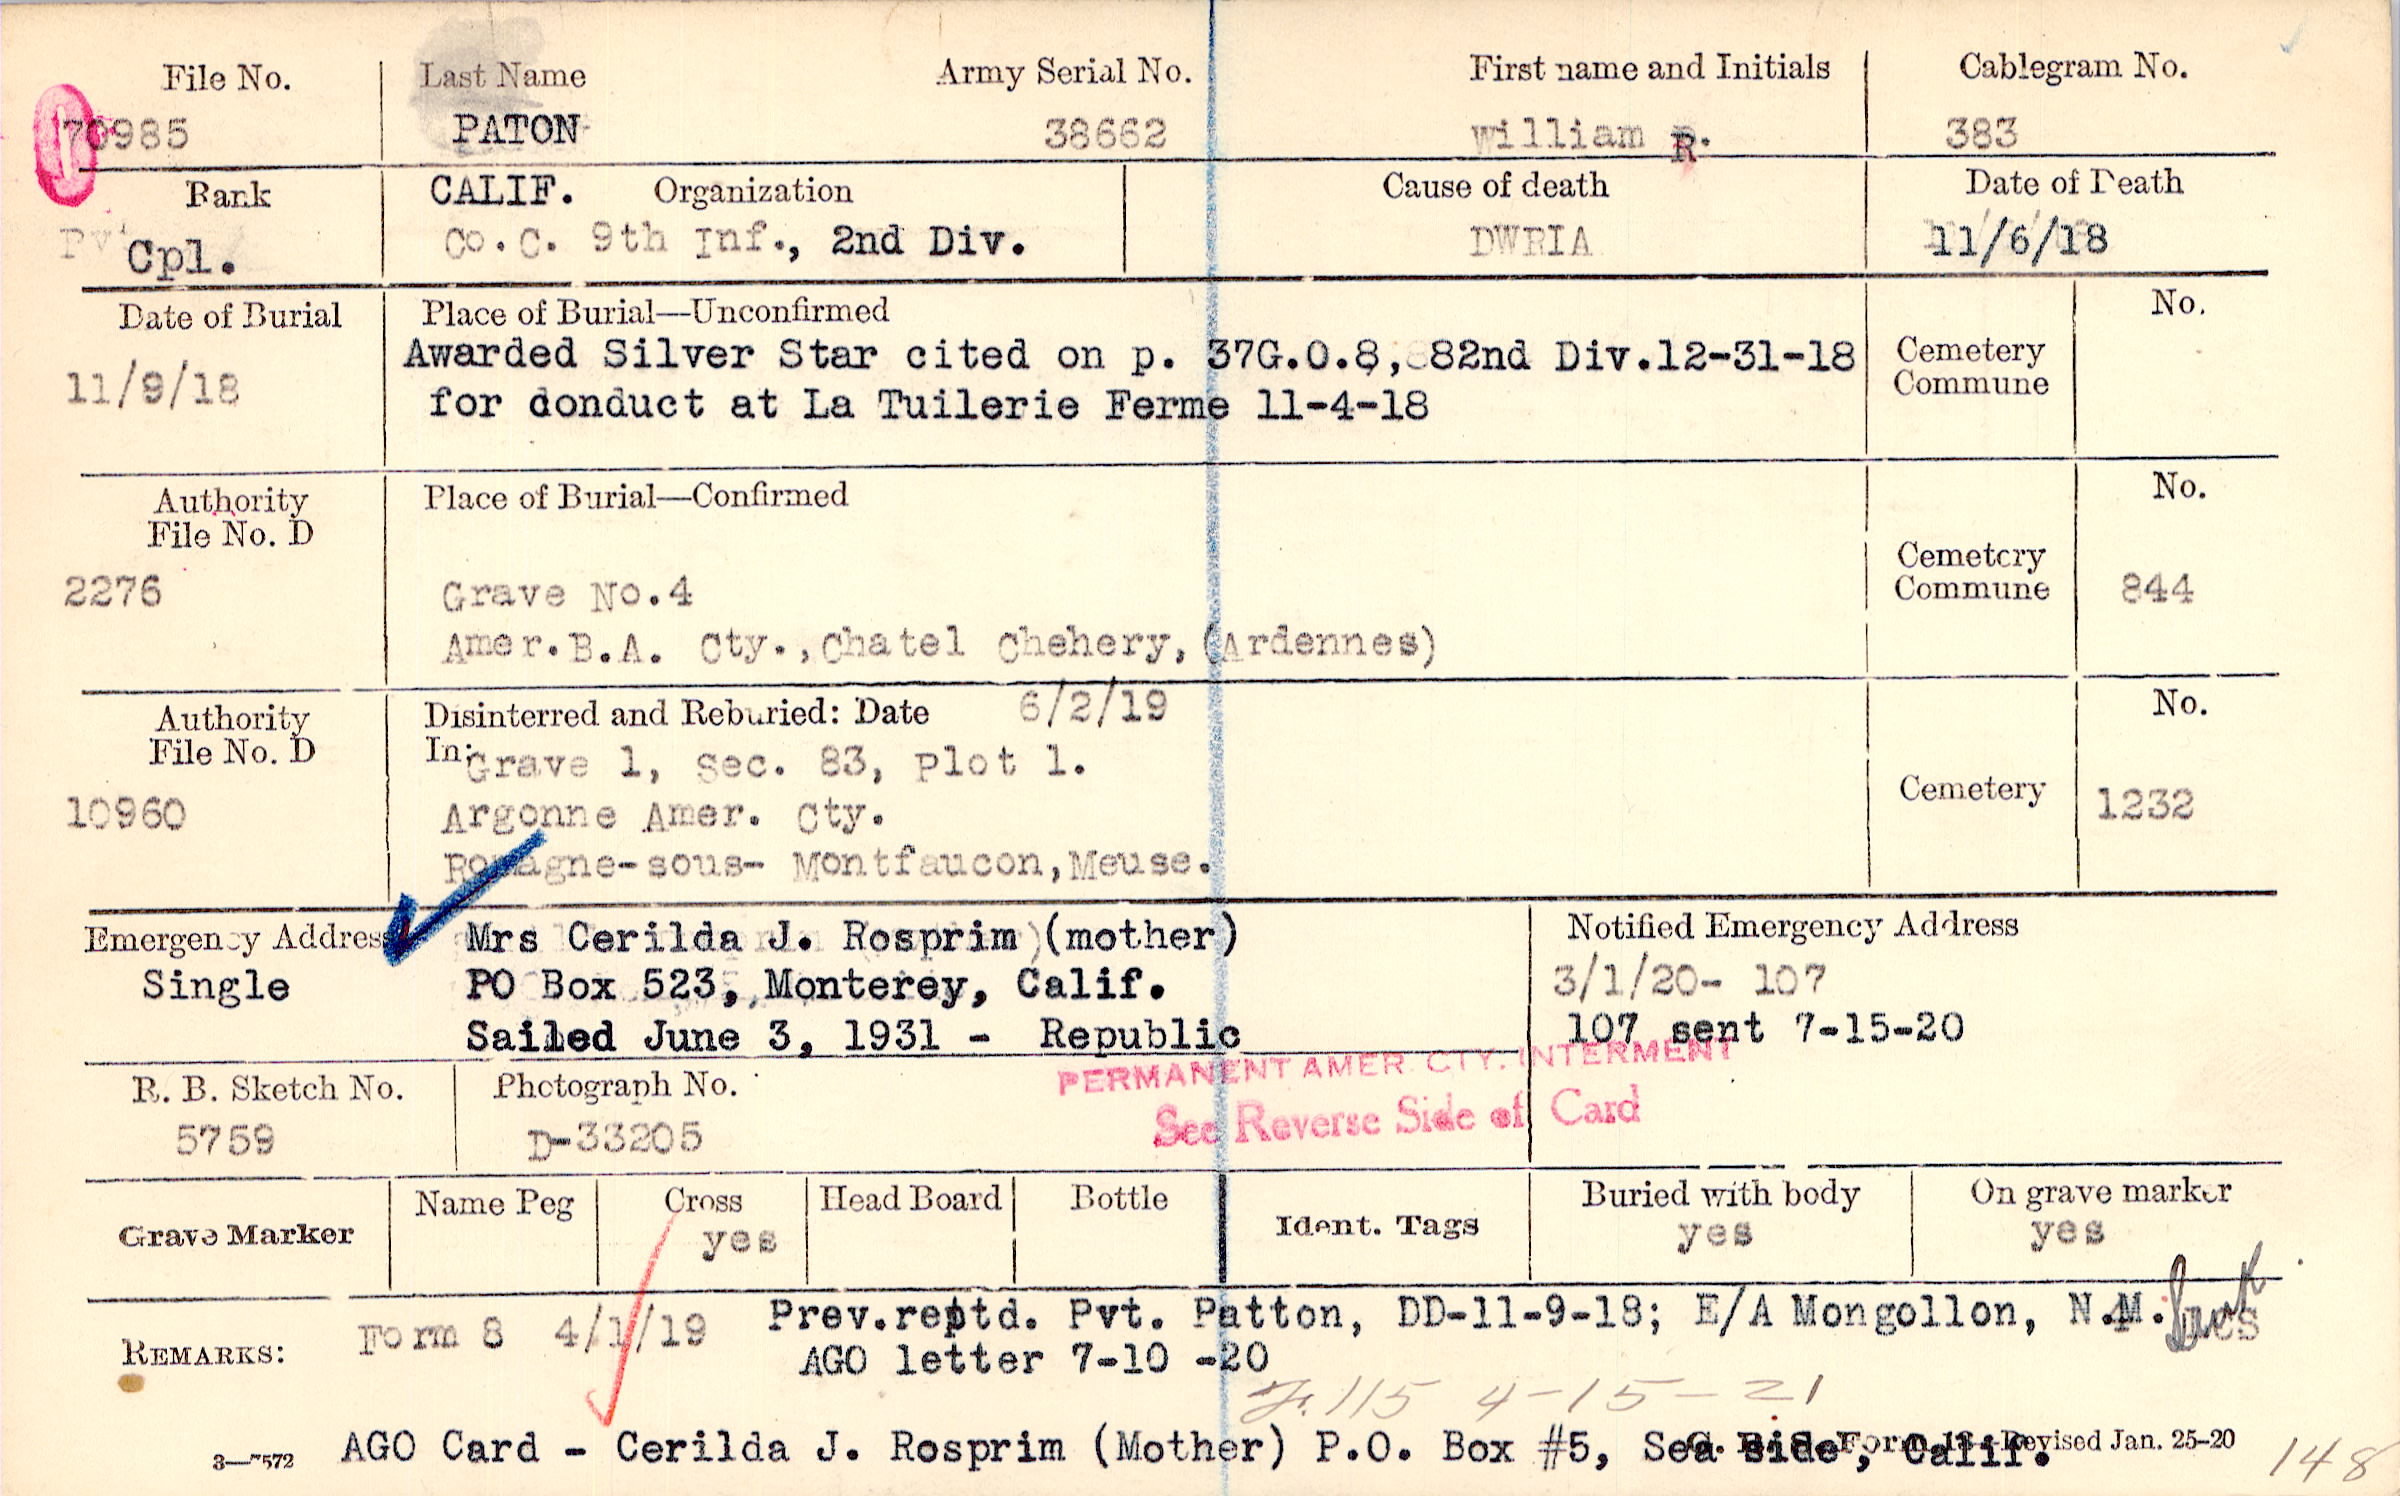 File No. Last Name Army Serial No. First name and Initials Cablegram No.
70985 PATON 38662 William R. 383
Rank CALIF. Organization Cause of death Date of Death
Pvt Cpl. Co. C. 9th Inf., 2nd Div. DWRIA 11/6/18
Date of Burial Place of Burial—Unconfirmed No.
11/9/18 Awarded Silver Star cited on p. 37G.O.8, 82nd Div.12-31-18 Cemetery
for donduct at La Tuilerie Ferme 11-4-18 Commune
Authority Place of Burial—Confirmed No.
File No. D
2276 Grave No.4 Cemetery Commune 844
Amer.B.A. Cty.,Chatel Chehery,(Ardennes)
Authority Disinterred and Reburied: Date 6/2/19 No.
File No. D In: Grave 1, Sec. 83, Plot 1.
10960 Argonne Amer. Cty. Cemetery 1232
Romagne-sous- Montfaucon,Meuse.
Emergency Address Mrs Cerilda J. Rosprim (mother) Notified Emergency Address
Single PO Box 523, Monterey, Calif. 3/1/20- 107
Sailed June 3, 1931 - Republic 107 sent 7-15-20
PERMANENT AMER. CTY. INTERMENT
R. B. Sketch No. Photograph No. See Reverse Side of Card
5759 D-33205
Grave Marker Name Peg Cross Head Board Bottle Ident. Tags Buried with body On grave marker
yes yes yes
REMARKS: Form 8 4/1/19 Prev.reptd. Pvt. Patton, DD-11-9-18; E/A Mongollon, N.M.
AGO letter 7-10 -20
115 4-15-21
3—7572 AGO Card - Cerilda J. Rosprim (Mother) P.O. Box #5, Sea side, Calif. Revised Jan. 25-20
148